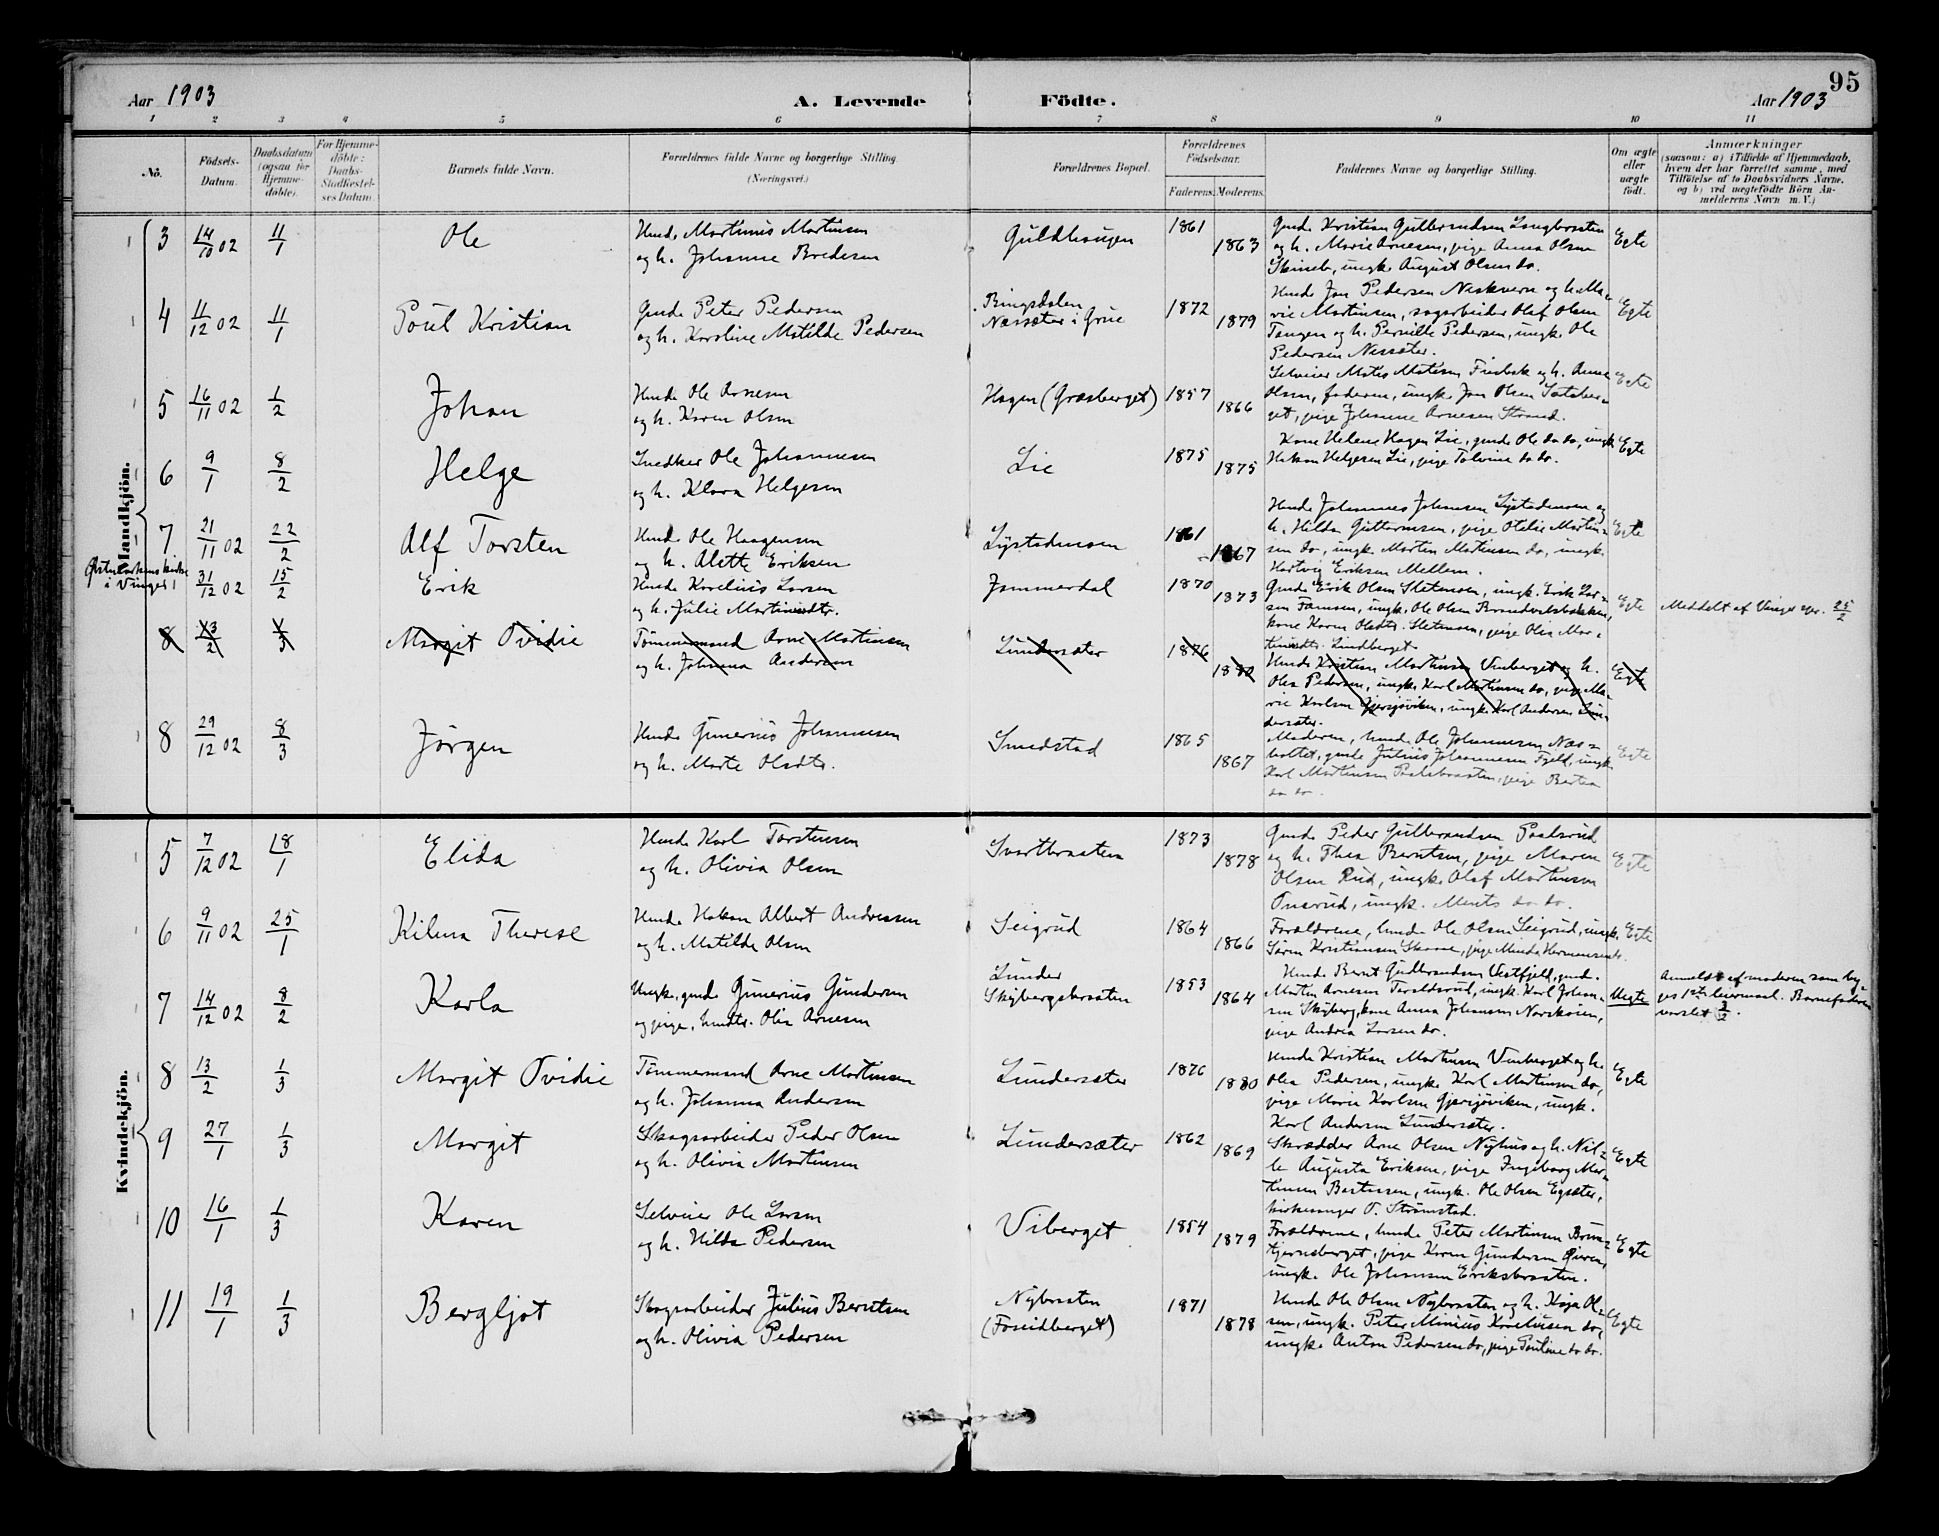 95
Aar 1903 A. Levende Födte. Aar 1903
1 2 3 4 5 6 7 8 9 10 11
No. Födsels-Datum. Daabsdatum (ogsaa for Hjemmedöbte). For Hjemmedöbte: Daabs-Stadfestelses Datum. Barnets fulde Navn. Forældrenes fulde Navne og borgerlige Stilling. (Næringsvei.) Forældrenes Bopæl. Forældrenes Födselsaar. Faderens. Moderens. Faddernes Navne og borgerlige Stilling. Om ægte eller uægte födt. Anmærkninger (saasom: a) i Tilfælde af Hjemmedaab, hvem der har forrettet samme, med Tilföielse af to Daabsvidners Navne, og b) ved uægtefödte Börn Anmelderens Navn m. V.)
Mandkjön.
3 14/10 02 11/1 Ole
Husmd. Martinus Martinsen
og h. Johanne Bredesen
Guldhaugen 1861 1863
Gmd. Kristian Gulbrandsen Langbraaten
og h. Marie Arnesen, pige Anna Olsen
Skineb, ungk. August Olsen do.
Egte
4 11/12 02 11/1 Poul Kristian
Gmd. Peter Pedersen
og h. Karoline Matilde Pedersen
Ringsdalen
Næssæter i Grue 1872 1879
Husmd. Jon Pedersen Neskvern og h. Ma-
rie Martinsen, sagarbeider Olaf Olsen
Tangen og h. Pernille Pedersen, ungk. Ole
Pedersen Nessæter.
Egte
5 16/11 02 1/2 Johan
Husmd. Ole Arnesen
og h. Karen Olsen
Hagen (Græsberget) 1857 1866
Selveier Mats Matisen Finbak og h. Anne
Olsen, faderen, ungk. Jon Olsen
get, pige Johanne Arnesen Strand.
Egte
6 9/1 8/2 Helge
Snedker Ole Johannesen
og h. Klara Helgesen
Lie 1875 1875
Kone Helene Hagen Lie, gmd. Ole do do, ungk.
Hakon Helgesen Lie, pige Tolvine do do.
Egte
7 21/11 02 22/2 Alf Torsten
Husmd. Ole Haagensen
og h. Alette Eriksen
Lystadmoen 1861 1867
Husmd. Johannes Johansen Lystadmoen og
h. Hilda Guttormsen, pige Otilie Martin-
sen do, ungk. Morten Martinsen do, ungk.
Hartvig Eriksen Mellem.
Egte
i Vinger 31/12 02 15/2 Erik
Husmd. Karelius Larsen
og h. Julie Martinsdtr.
Jammerdal 1870 1873
Gmd. Erik Olsen Sletmoen, ungk. Erik Lar-
sen Fanosen, ungk. Ole Olsen Brandvalsbakken,
kone Karen Olsdtr. Sletmoen, pige Olia Mar-
tinsdtr. Lindberget
Egte
Meddelt af Vinger spr. 25/2
8 13/2 1/3 Margit Ovidie
Tömmermand Arne Martinsen
og h. Johanna Andersen
Lundersæter 1876 1880
Husmd. Kristian Martinsen Vinberget og h.
Olea Pedersen, ungk. Karl Martinsen do, pige Ma-
rie Karlsen Gjersjöviken, ungk. Karl Andersen Lun-
dersæter.
Egte
8 29/12 02 8/3 Jörgen
Husmd. Gunerius Johannesen
og h. Marte Olsdtr.
Smedstad 1865 1867
Moderen, husmd. Ole Johannesen Næs-
bottet, gmd. Julius Johannesen Fjeld, ungk.
Karl Martinsen Paalsbraaten, pige Bertea
do do.
Egte
Kvindekjön.
5 7/12 02 18/1 Elida
Husmd. Karl Torstensen
og h. Olivia Olsen
Svartbraaten 1873 1878
Gmd. Peder Gulbrandsen Paalsrud
og h. Thea Berntsen, pige Maren
Olsen Rud, ungk. Olaf Martinsen
Onsrud, ungk. Ments do do.
Egte
6 9/11 02 25/1 Kilma Therese
Husmd. Hakon Albert Andreasen
og h. Matilde Olsen
Seigrud 1864 1866
Forældrene, husmd. Ole Olsen Seigrud, ungk.
Sören Kristiansen Skarne, pige Minda Hermansendt.
Egte
7 14/12 02 8/2 Karla
Ungk., gmd. Gunerius Gundersen
og pige, husmdtr. Olia Arnesen
Lunder
Skybergsbraaten 1853 1864
Husmd. Bernt Gudbrandsen Vestfjeld, gmd.
Morten Arnesen Taraldsrud, ungk. Karl Johan-
sen Skyberg, kone Anna Johansen Norskoien,
pige Andrea Larsen do.
Uegte
Anmeldt af moderen som hyg-
ges 1ste leiermaal. Barnefaderen
varslet 3/2.
8 13/2 1/3 Margit Ovidie
Tömmermand Arne Martinsen
og h. Johanna Andersen
Lundersæter 1876 1880
Husmd. Kristian Martinsen Vinberget og h.
Olea Pedersen, ungk. Karl Martinsen do,
pige Marie Karlsen Gjersjöviken, ungk.
Karl Andersen Lundersæter.
Egte
9 27/1 1/3 Margit
Skogsarbeider Peder Olsen
og h. Olivia Martinsen
Lundersæter 1862 1869
Skrædder Arne Olsen Nyhus og h. Nil-
le Augusta Eriksen, pige Ingeborg Mar-
tinsen Bastuesen, ungk. Ole Olsen Egsæter,
kirkesanger O. Strömstad.
Egte
10 16/1 1/3 Karen
Selveier Ole Larsen
og h. Hilda Pedersen
Viberget 1854 1879
Forældrene, husmd. Peter Martinsen Brun-
tjernsberget, pige Karen Gundersen Öieren,
ungk. Ole Johansen Eriksbraaten.
Egte
11 19/1 1/3 Bergljot
Skogsarbeider Julius Berntsen
og h. Olivia Pedersen
Nybraaten
(Foseidberget) 1871 1878
Husmd. Ole Olsen Nybraaten og h. Kaja Ol-
sen, ungk. Peter Minius Karelusen do,
ungk. Anton Pedersen do, pige Pauline do do.
Egte